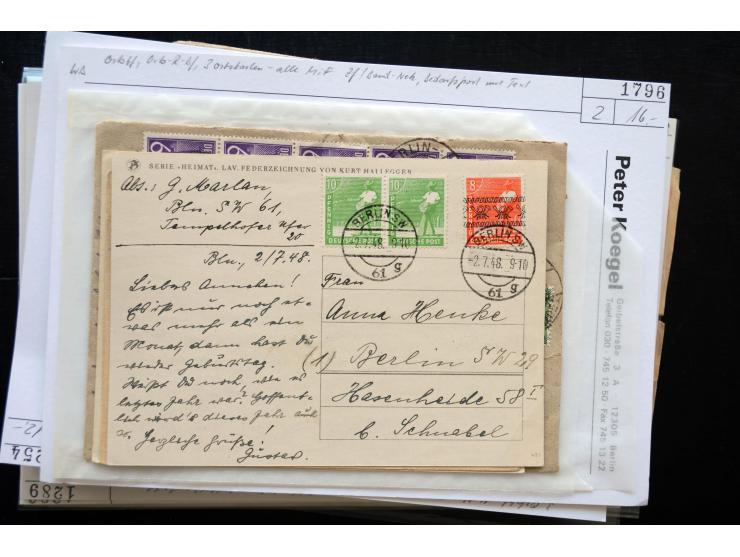 1796
2 16.-
Peter Koegel
Geibelstraße 3 A 12305 Berlin
Telefon 030 745 12 50 Fax 745 13 22
SERIE »HEIMAT«. LAV. FEDERZEICHNUNG VON KURT HALLEGGER
Abs.: G. Marlan,
Bln. SW 61,
Tempelhofer Ufer
20
Bln., 2/7.48.
Liebes Annchen!
Es ist nur noch et-
was mehr als ein
Monat, dann hast Du
wieder Geburtstag.
Weißt Du noch, wie es
letztes Jahr war? Hoffent-
lich wird's dieses Jahr auch
so. Herzliche Grüße!
Gustav.
10 10 8
PFENNIG
DEUTSCHE POST DEUTSCHE POST
BERLIN SW
-2.7.48. 9-10
61 g
BERLIN SW
-2.7.48. 9-10
61 g
Frau
Anna Henke
(1) Berlin SW 29
Hasenheide 58 I
b. Schnabel
12.-
254
1289